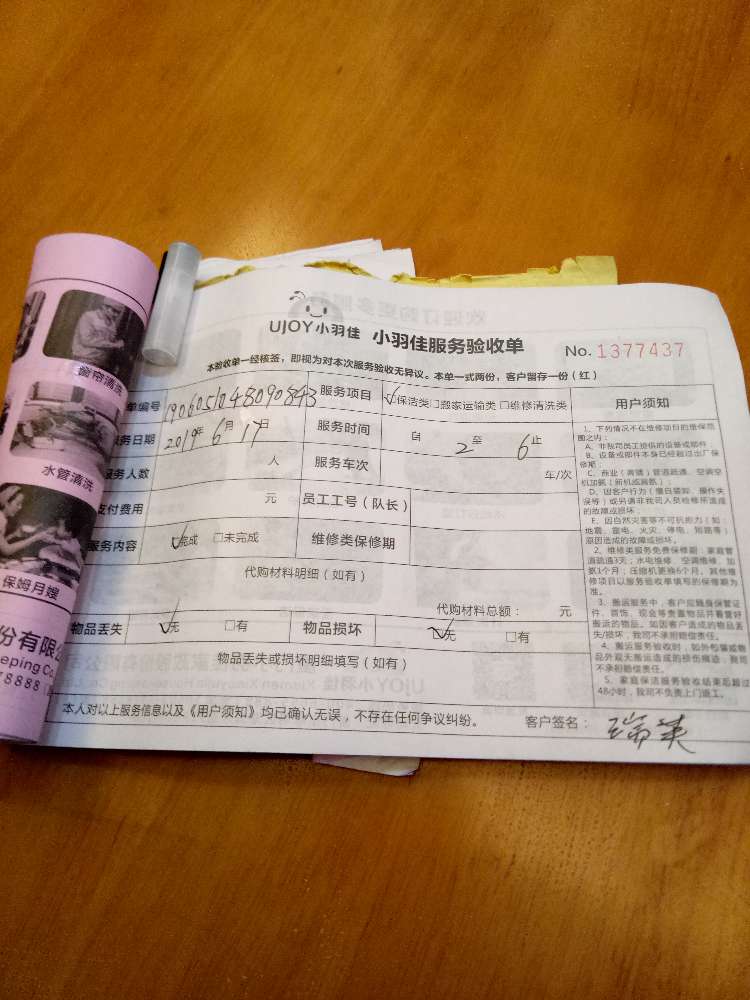 UJOY小羽佳 小羽佳服务验收单
No. 1377437
本验收单一经核签，即视为对本次服务验收无异议。本单一式两份，客户留存一份（红）
单编号 1906051048090843 服务项目 保洁类□搬家运输类□维修清洗类 用户须知
服务日期 2019年6月17日 服务时间 自2至6止
服务人数 人 服务车次 车/次
支付费用 元 员工工号（队长）
服务内容 完成 □未完成 维修类保修期
代购材料明细（如有）
代购材料总额： 元
物品丢失 无 □有 物品损坏 无 □有
物品丢失或损坏明细填写（如有）
本人对以上服务信息以及《用户须知》均已确认无误，不存在任何争议纠纷。
客户签名： 瑞英
1、下列情况不在维修项目的维保范围之内：
A、非我司员工提供的设备或部件
B、设备或部件本身已经超过出厂保修期；
E、因自然灾害等不可抗影力（如：地震、雷电、火灾、停电、短路等）原因造成的故障或损坏。
2、维修类服务免费保修期：家庭管道疏通3天；水电维修、空调维修、加氨1个月；压缩机更换6个月，其他维修项目以服务验收单填写的保修期为准。
3、搬运服务中，客户应随身保管证件、首饰、现金等贵重物品并看管好搬运的物品。如因客户造成的物品丢失/损坏，我司不承担赔偿责任。
5、家庭保洁服务验收结束后超过48小时，我司不负责上门返工。
窗帘清洗
水管清洗
保姆月嫂
份有限
eping Co.
78888